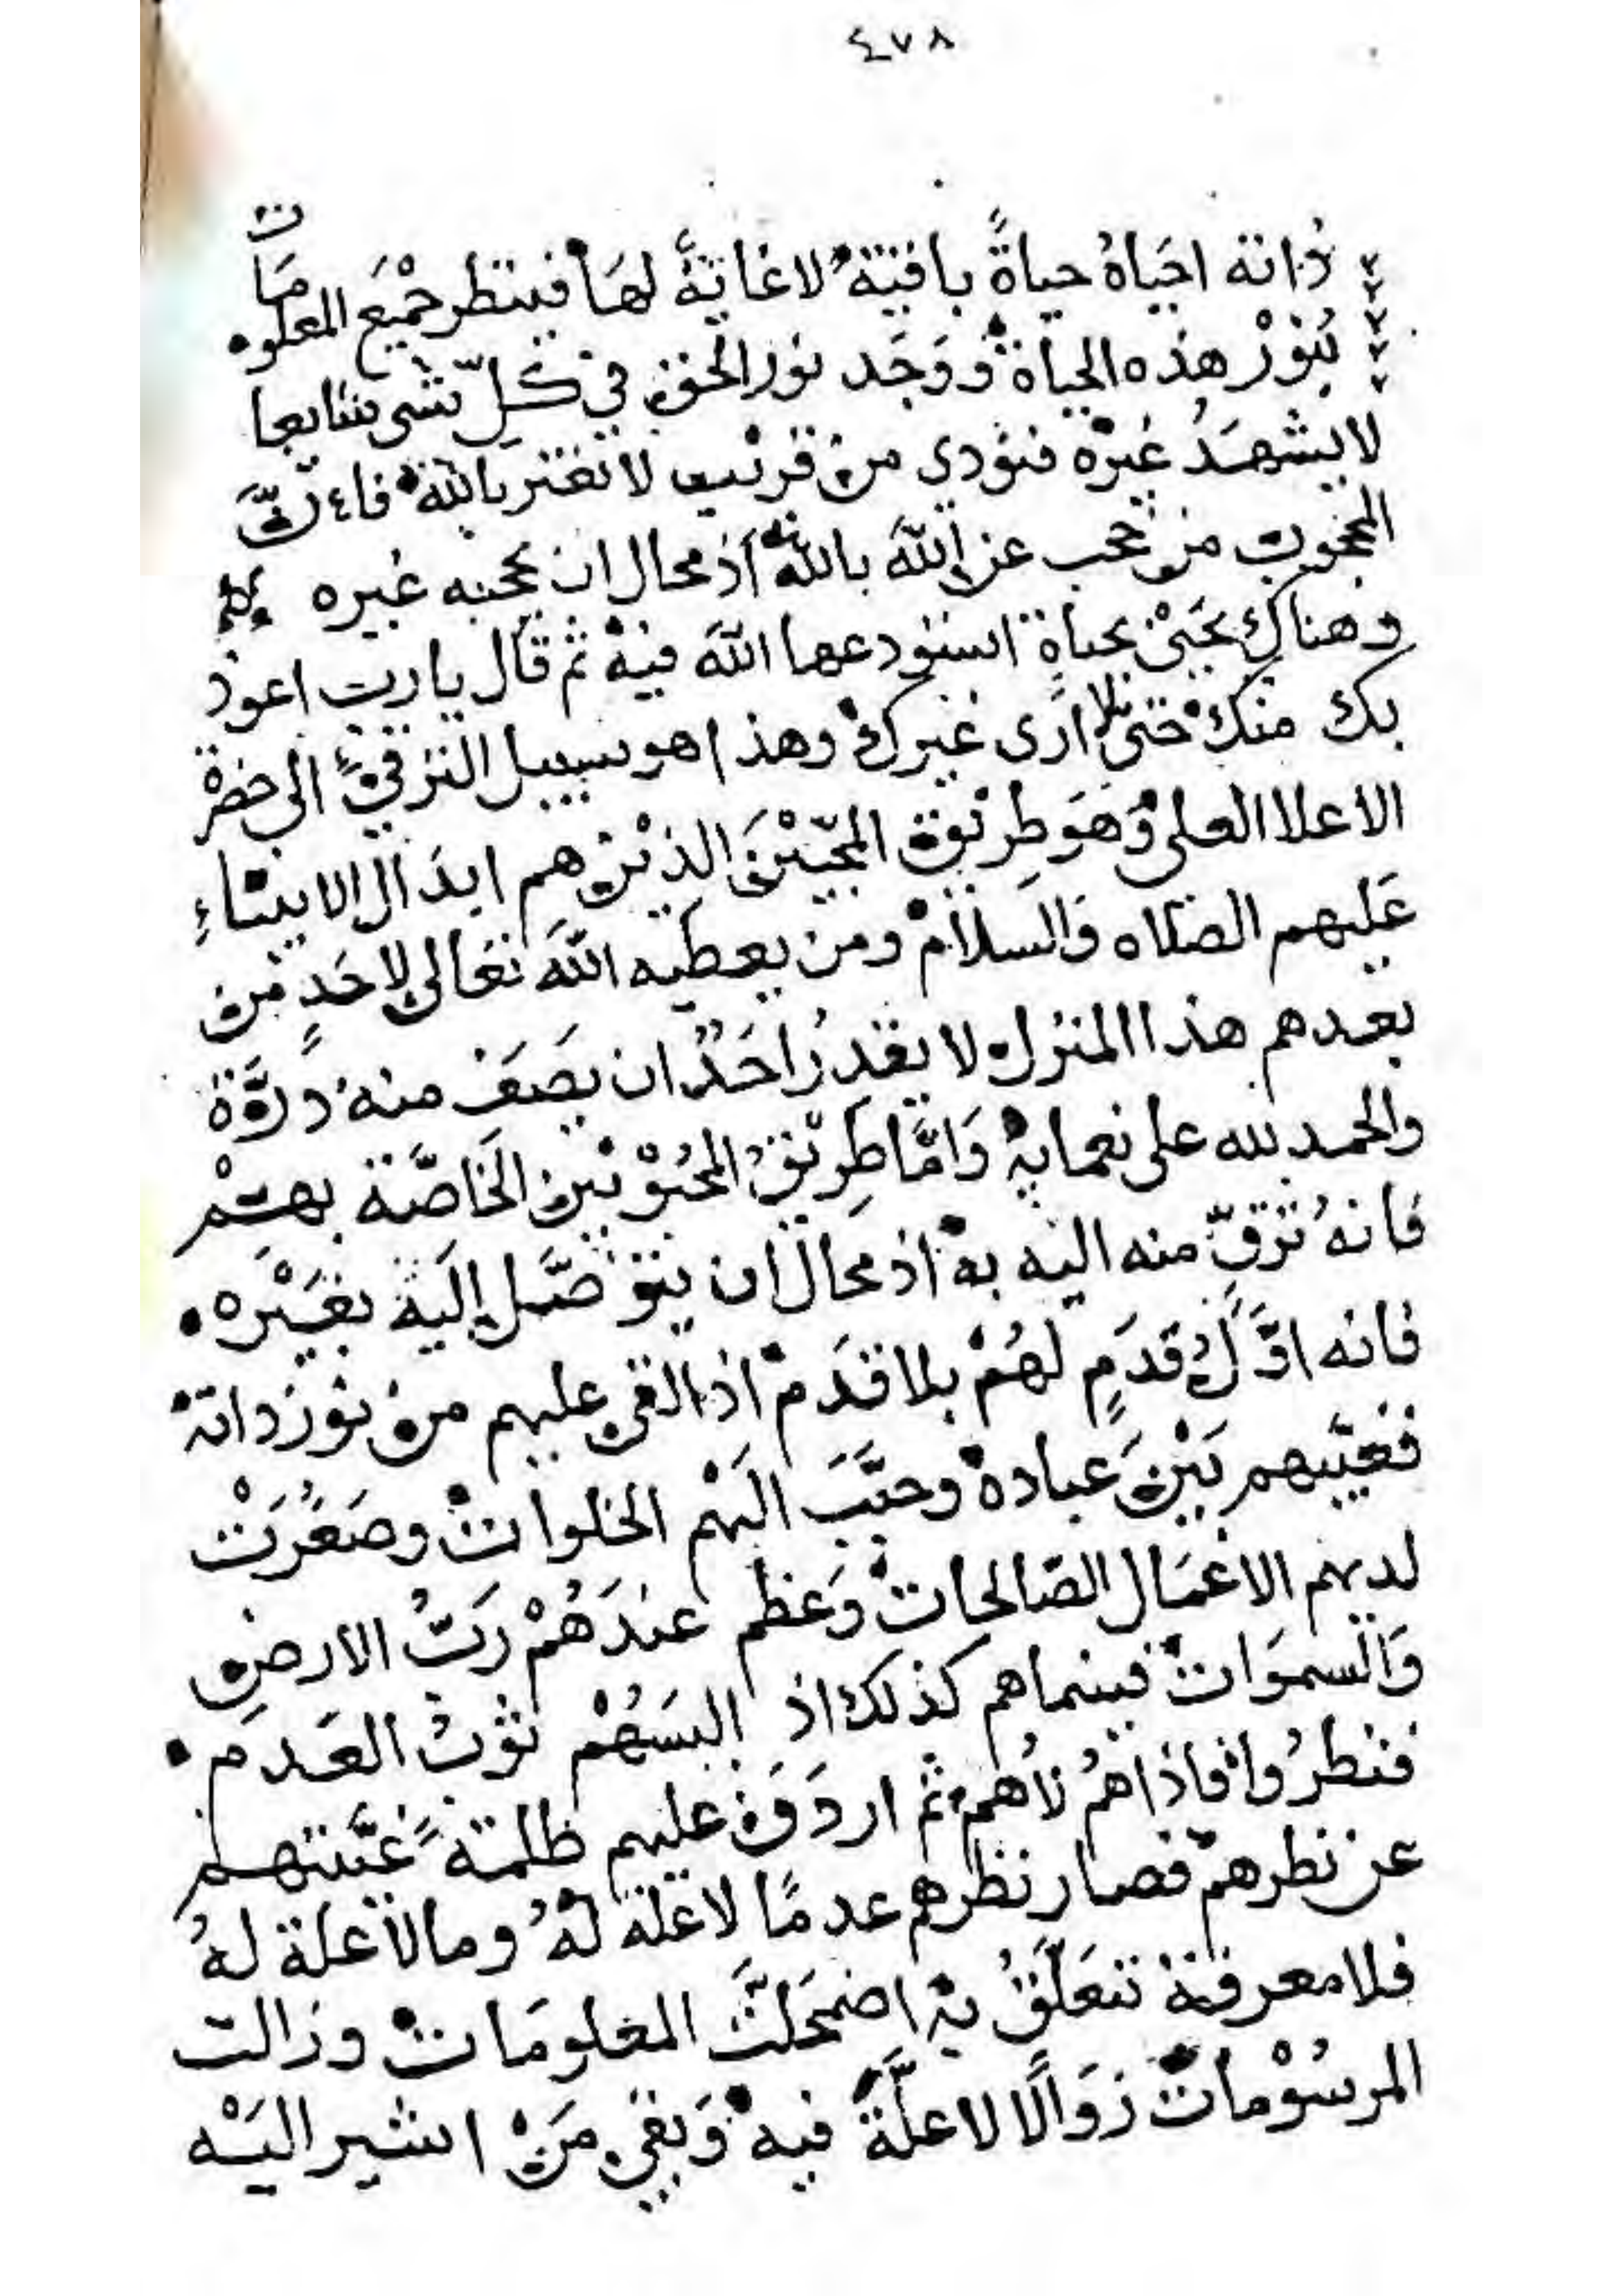 ٤٧٨
ذاته احياهُ حياةً باقيةً لا غايةَ لهَا فينظر جَميْعَ المعلومَات
بنورْ هذه الحياة وَوَجَد نور الحق في كلّ شى شايعا
لا يشهَدُ غيرْه فنودي من قريب لا تغتر بالله فاءنَّ
المحجوب من حجب عن اللهَ بالله اذ محال ان يحجبه غيره
وهناك يحَيىْ بحياةٍ استودعها اللهَ فيهْ ثم قال يا رب اعوذ
بك منك حتى لا ارى غيرك وهذا هو سبيل الترقي الى حضرة
الاعلا العلى وَهوَ طريقة المحبّيْنَ الذيْن هم ابدَال الانبيَاءِ
عَليهم الصلاه وَالسلامْ ومن يعطيه اللهَ تعَالى لاحَدٍ من
بعدهم هذا المنزل لا يقدرُ احَدٌ ان يصَف منه ذرَّة
والحمد لله على نعمايهْ وَامَّا طريْقُ المحبُوْبيْن الخَاصَّة بهم
فانهُ ترَقٍّ منه اليه بهْ اذ محالٌ ان يتوَصَّل إليَه بغَيْره
فانه اوَّلُ قدَمٍ لهُمْ بلا قدَم اذ القى عليهم من نور ذاتهْ
فغيّبهم بَيْنَ عبادهْ وحبَّبَ اليَهْم الخلوات وصَغُرَتْ
لديهم الاعْمَال الصَالحات وَعَظم عندَهُمْ رَبُّ الارض
وَالسموَات فبينما هم كذلك اذ البسَهُمْ ثوْبْ العَدم
فنظرُوا فاذا هُمْ لا هُمْ ثم اردَفَ عليهم ظلمةً غيَّبتهم
عن نظرهمْ فصار نظرهم عدمًا لا علة لهُ وما لا علة لهُ
فلا معرفة تتعَلَّقُ بهْ اضمحَلتَّ المعلومَات وزالت
المرسُوْماتْ زوَالًا لا علَّةَ فيهْ وَبقي مَنْ اشير اليَه